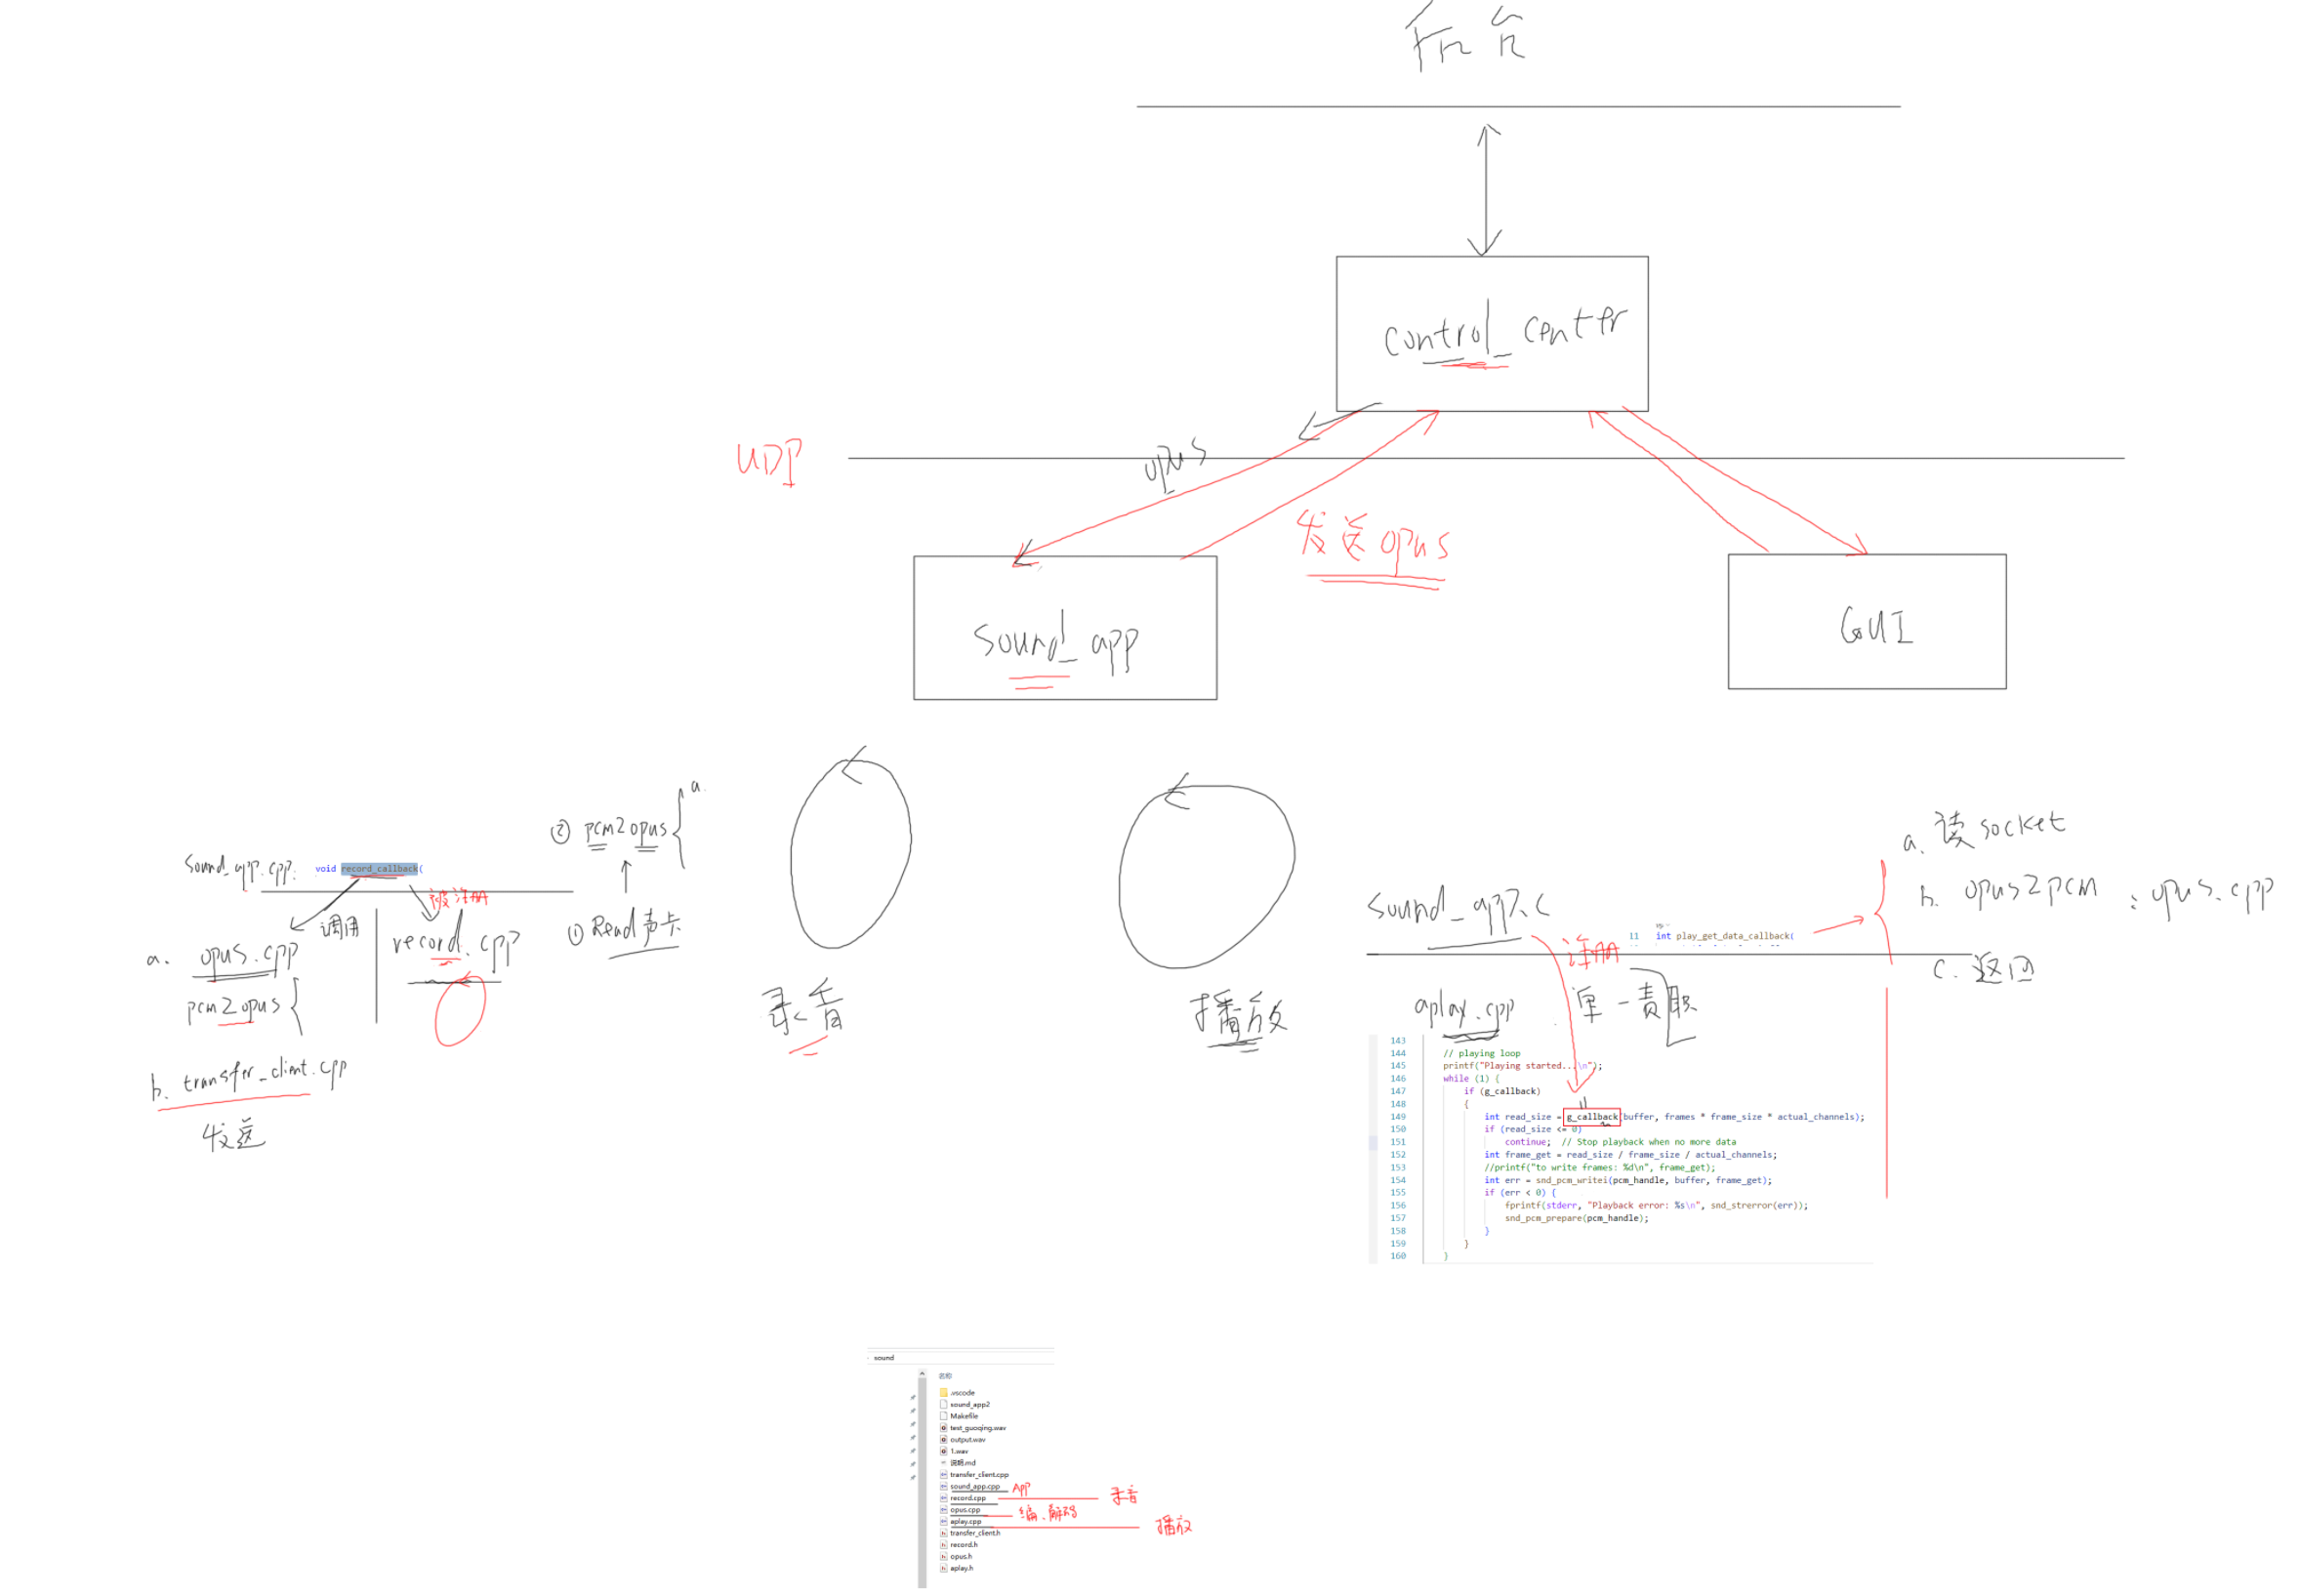 control_center
UDP
opus
发送opus
sound_app
GUI
② pcm2opus
a.
sound_app.cpp:
void record_callback(
被注册
调用
① Read声卡
record.cpp
a. opus.cpp
pcm2opus
b. transfer_client.cpp
发送
录音
播放
a. 读socket
b. opus2pcm : opus.cpp
c. 返回
sound_app.c
11 int play_get_data_callback(
注册
aplay.cpp
单一责职
143
144 // playing loop
145 printf("Playing started...\n");
146 while (1) {
147 if (g_callback)
148 {
149 int read_size = g_callback(buffer, frames * frame_size * actual_channels);
150 if (read_size <= 0)
151 continue; // Stop playback when no more data
152 int frame_get = read_size / frame_size / actual_channels;
153 //printf("to write frames: %d\n", frame_get);
154 int err = snd_pcm_writei(pcm_handle, buffer, frame_get);
155 if (err < 0) {
156 fprintf(stderr, "Playback error: %s\n", snd_strerror(err));
157 snd_pcm_prepare(pcm_handle);
158 }
159 }
160 }
sound
名称
.vscode
sound_app2
Makefile
test_guoqing.wav
output.wav
1.wav
说明.md
transfer_client.cpp
sound_app.cpp APP
record.cpp 录音
opus.cpp 编、解码
aplay.cpp 播放
transfer_client.h
record.h
opus.h
aplay.h